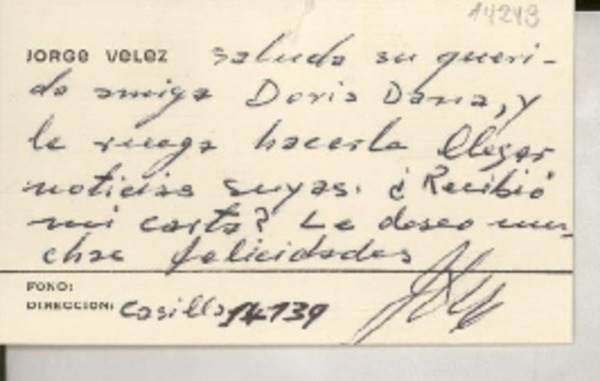 14248
JORGE VELEZ saluda su queri-
da amiga Doris Dana, y
le ruega hacerle llegar
noticias suyas. ¿Recibió
mi carta? Le deseo mu-
chas felicidades
FONO:
DIRECCION: Casilla 14139